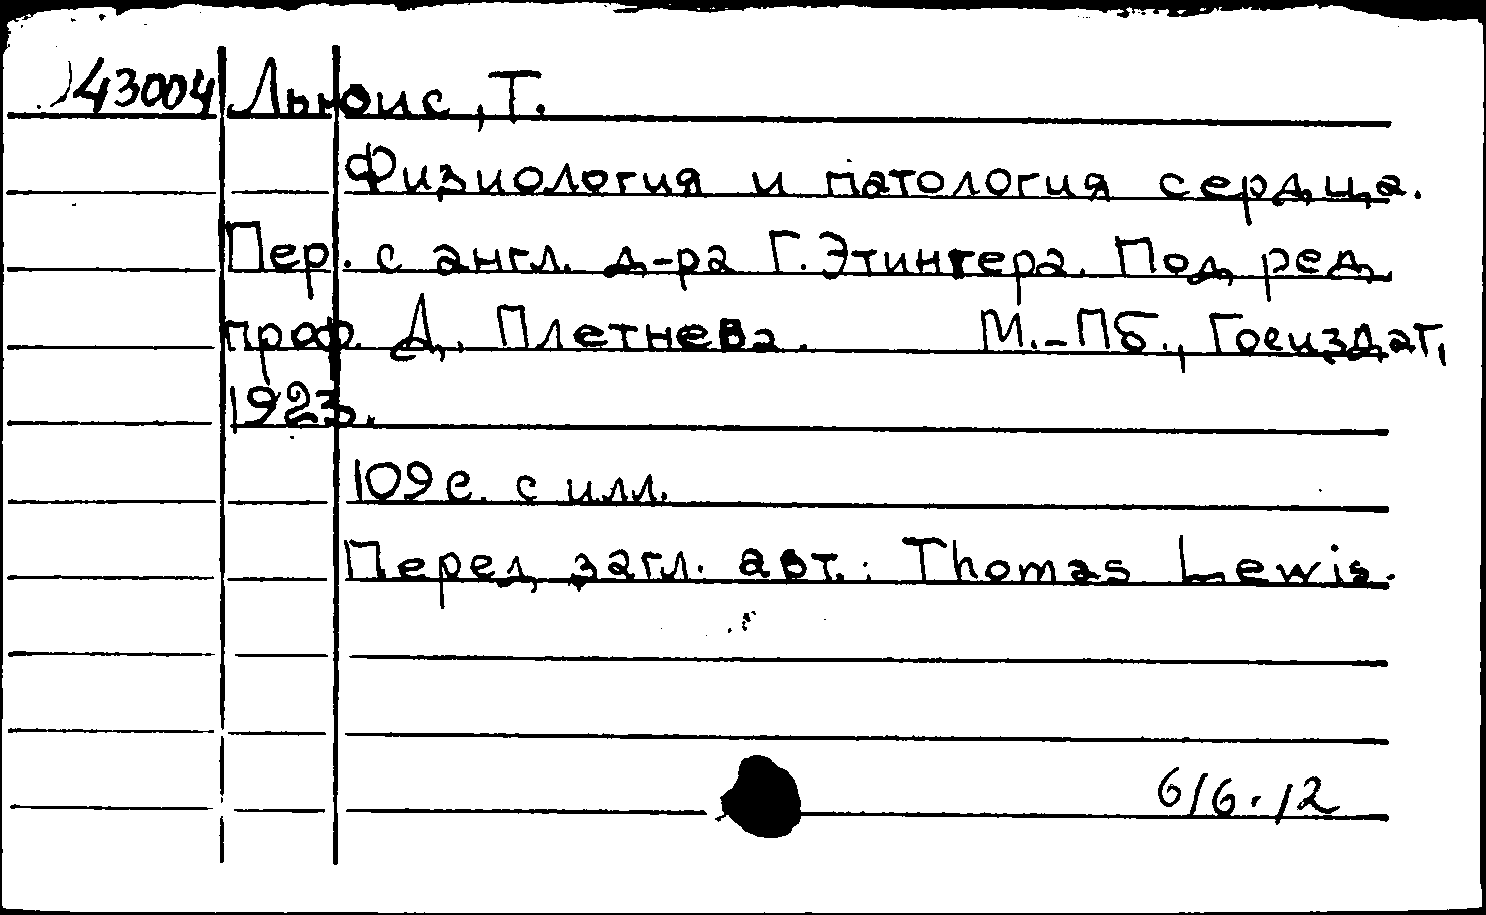 43004 Льюис, Т.
Физиология и патология сердца.
Пер. с англ. д-ра Г. Этингера. Под ред.
проф. Д. Плетнева. М.-Пб., Госиздат,
1923.
109 с. с илл.
Перед загл. авт.: Thomas Lewis.
616.12